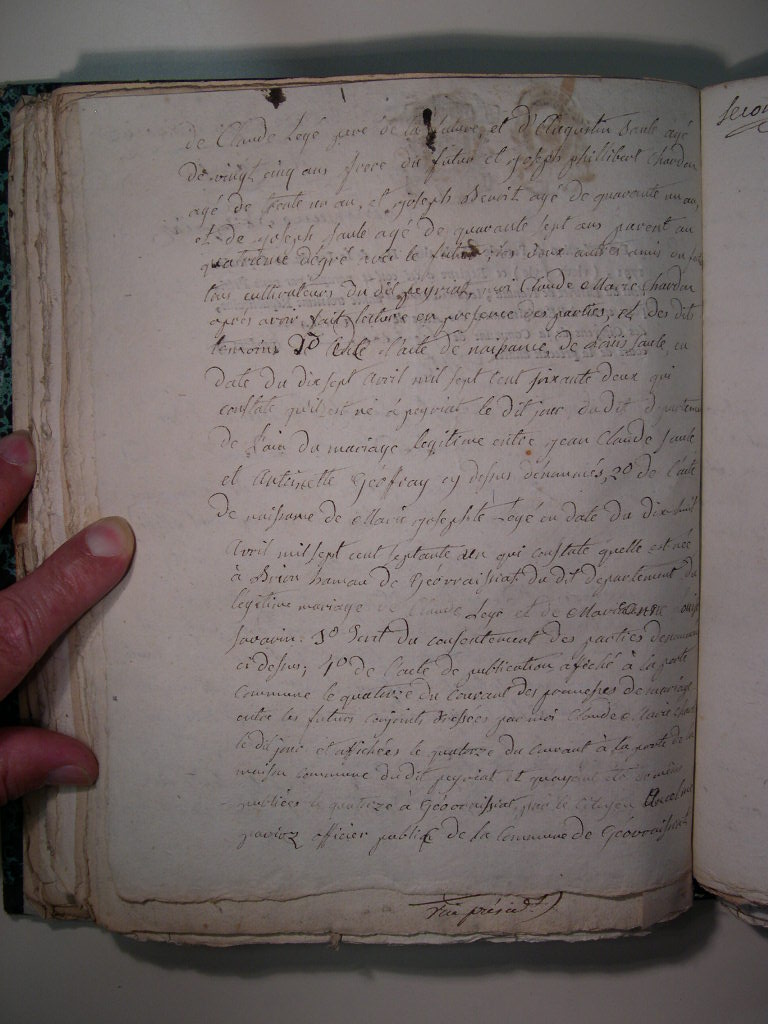 de Claude Legé pere de la future, et d'Augustin Saule agé
de vingt cinq ans frere du futur et Joseph phillibert Chardon
agé de trente un an, et Joseph Benoit agé de quarante un an,
et de Joseph Saule agé de quarante sept ans parent au
quatrieme dégré avec le futur, les deux autres amis du futur
tous cultivateurs du dit peyriat, moi Claude Marie Chardon
après avoir fait lecture en presence des parties, et des dit
temoins 1º de l'acte de naissance de Louis Saule, en
date du dix sept avril mil sept cent soixante deux qui
constate qu'il est né à peyriat le dit jour du dit departement
de l'ain du mariage legitime entre jean Claude Saule
et Antoinette Géoffray cy dessus dénommés, 2º de l'acte
de naissance de Marie Josephte Legé en date du dix huit
avril mil sept cent septante un qui constate quelle est née
à Brion hamau de Géovraissiat du dit departement du
légitime mariage de Claude Legé et de Marie
Savarin: 3º Surt du consentement des parties denommés
ci dessus; 4º de l'acte de publication affiché à la porte
commune le quatorze du courant des promesses de mariage
entre les futurs conjoints dressées par moi Claude Marie Chardon
le dit jour et affichées le quatorze du courant à la porte de la
maison commune du dit peyriat et quayent été de même
publiées le quatorze à Géovraissiat, par le Citoyen
officier public de la Commune de Géovraissiat
Seron